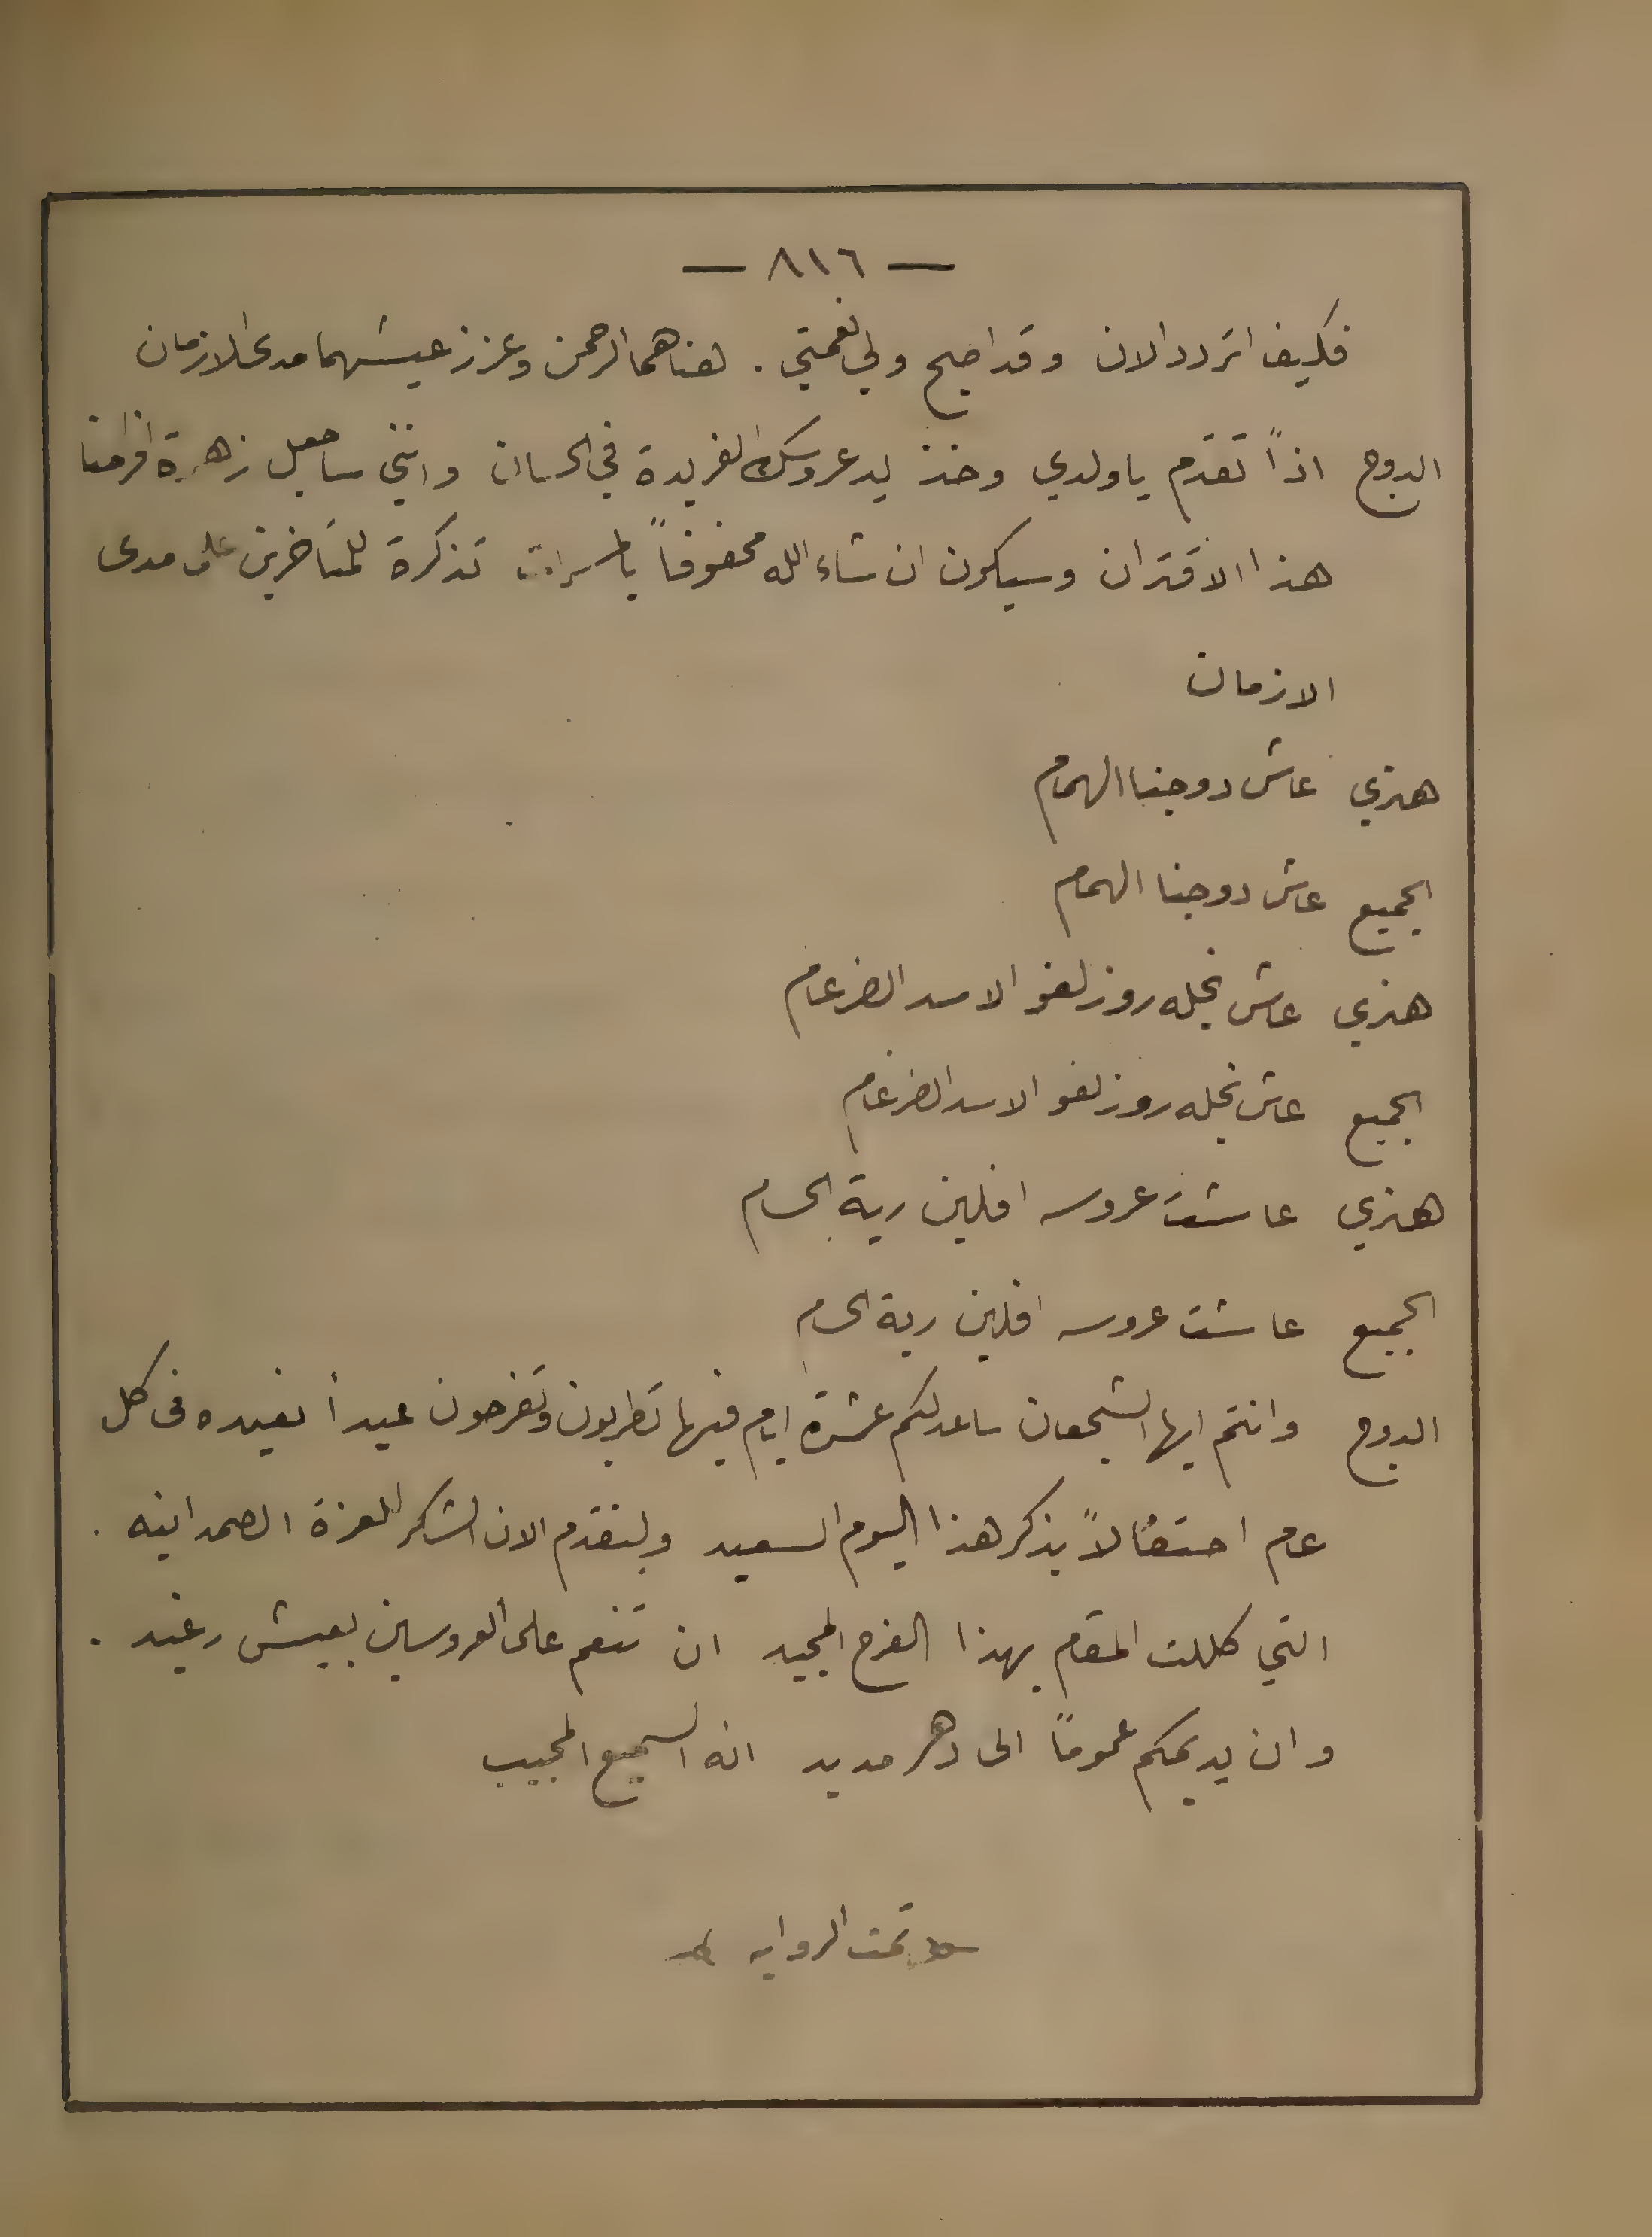 — ٨١٦ —
فكيف اتردد الان وقد اصبح ولي نعمتي . هناهما الرحمن وعزز عيشهما مدى الازمان
الدوج اذاً تقدم يا ولدي وخذ يد عروسك الفريدة في الحسان وانني ساجعل زهرة افراحنا
هذا الاقتران وسيكون ان شاء الله محفوفاً بالمسرات تذكرة للمتاخرين على مدى
الازمان
هنري عاش دوجنا الهمام
الجميع عاش دوجنا الهمام
هنري عاش نجله روزلفو الاسد الضرغام
الجميع عاش نجله روزلفو الاسد الضرغام
هنري عاشت عروسه افلين ربة الحسام
الجميع عاشت عروسه افلين ربة الحسام
الدوج وانتم ايها الشجعان ساعد لكم عشرة ايام فيها تطربون وتفرحون عيداً نعيده فى كل
عام احتفالاً بذكر هذا اليوم السعيد ولنقدم الان الشكر للعزة الصمدانيه .
التي كللت المقام بهذا الفرح المجيد ان تنعم على العروسين بعيش رغيد .
وان يديمكم عموماً الى دهر مديد انه السميع المجيب
تمت الروايه